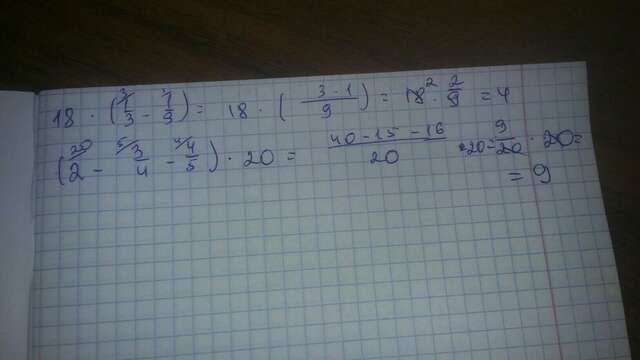 18 · (³⁄1/3 − ¹⁄1/9) = 18 · ( 3-1/9 ) = 18² · 2/9 = 4
(²⁰⁄2 − ⁵⁄3/4 − ⁴⁄4/5) · 20 = 40-15-16/20 · 20 = 9/20 · 20 =
= 9